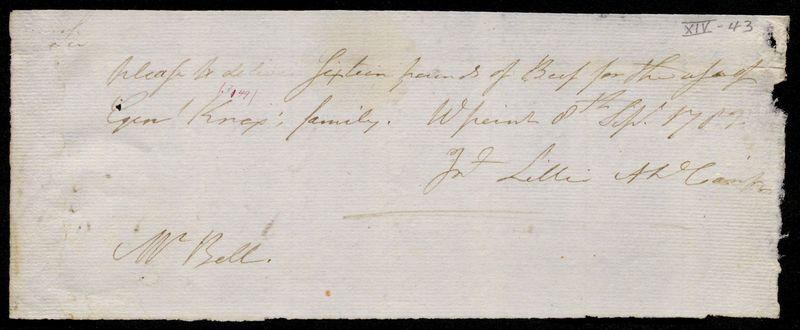 XIV - 43
please to deliver Sixteen pounds of Beef for the use of
Genl Knox's family. Wpoint 8th Sept. 1782
Jno Lillie Ad Camp
Mr Bell.